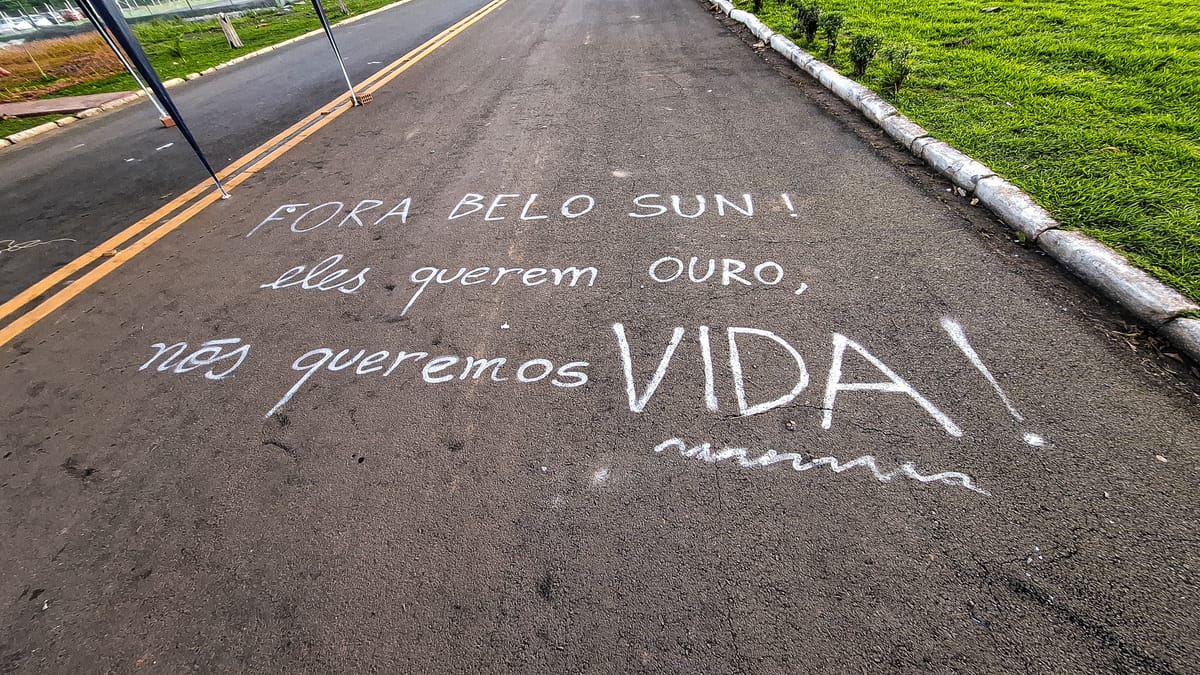 FORA BELO SUN!
eles querem OURO,
nós queremos VIDA!